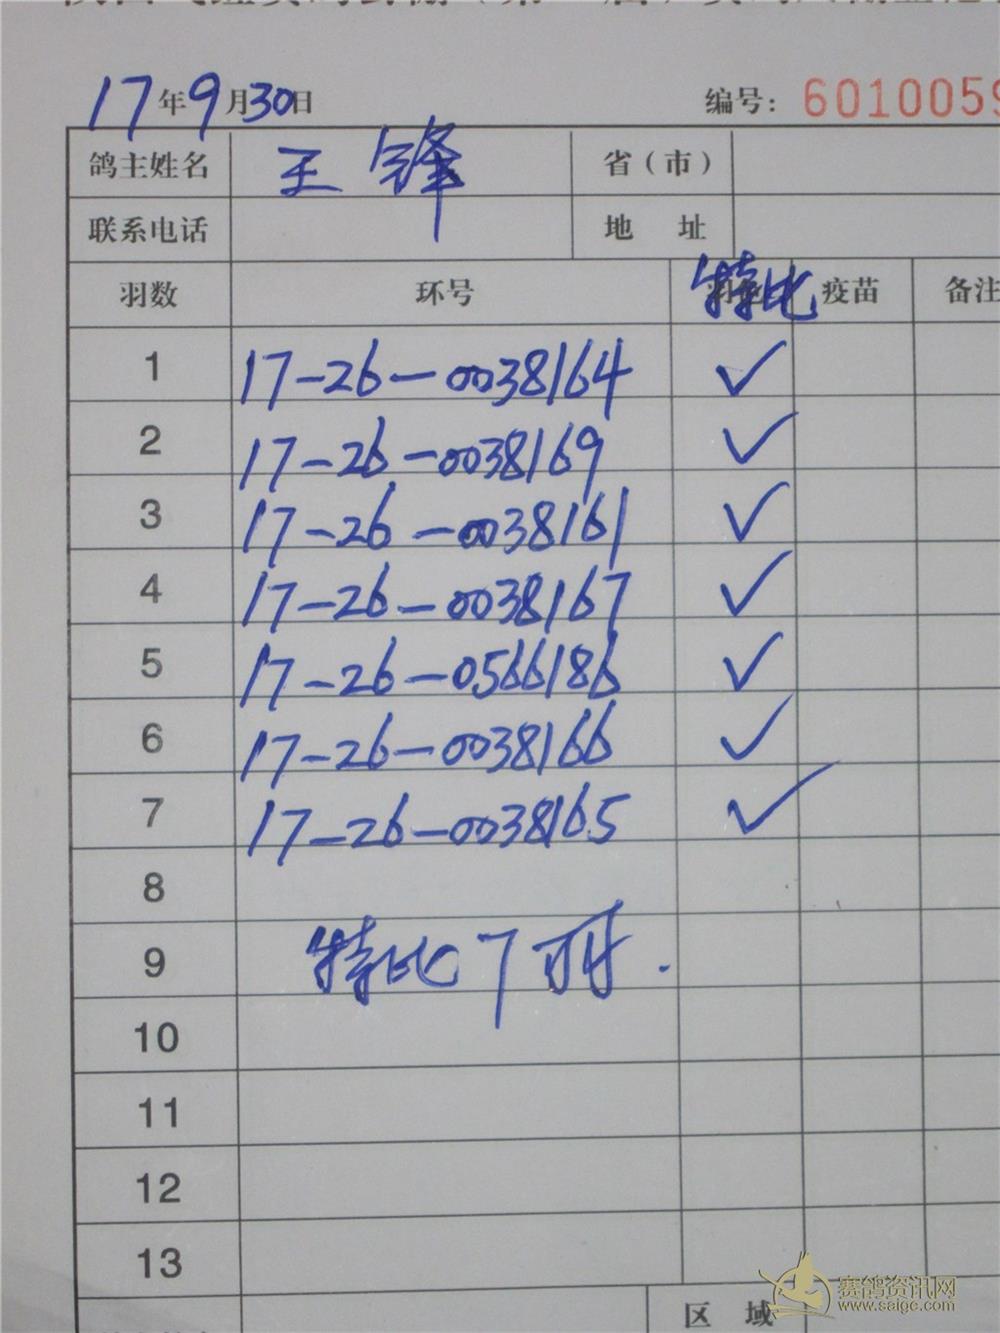 17年9月30日 编号: 6010059
鸽主姓名 王锋 省(市)
联系电话 地 址
羽数 环号 特比 疫苗 备注
1 17-26-0038164 ✓
2 17-26-0038169 ✓
3 17-26-0038161 ✓
4 17-26-0038167 ✓
5 17-26-0566186 ✓
6 17-26-0038166 ✓
7 17-26-0038165 ✓
8
9 特比7羽.
10
11
12
13
区 域
赛鸽资讯网
www.saigc.com